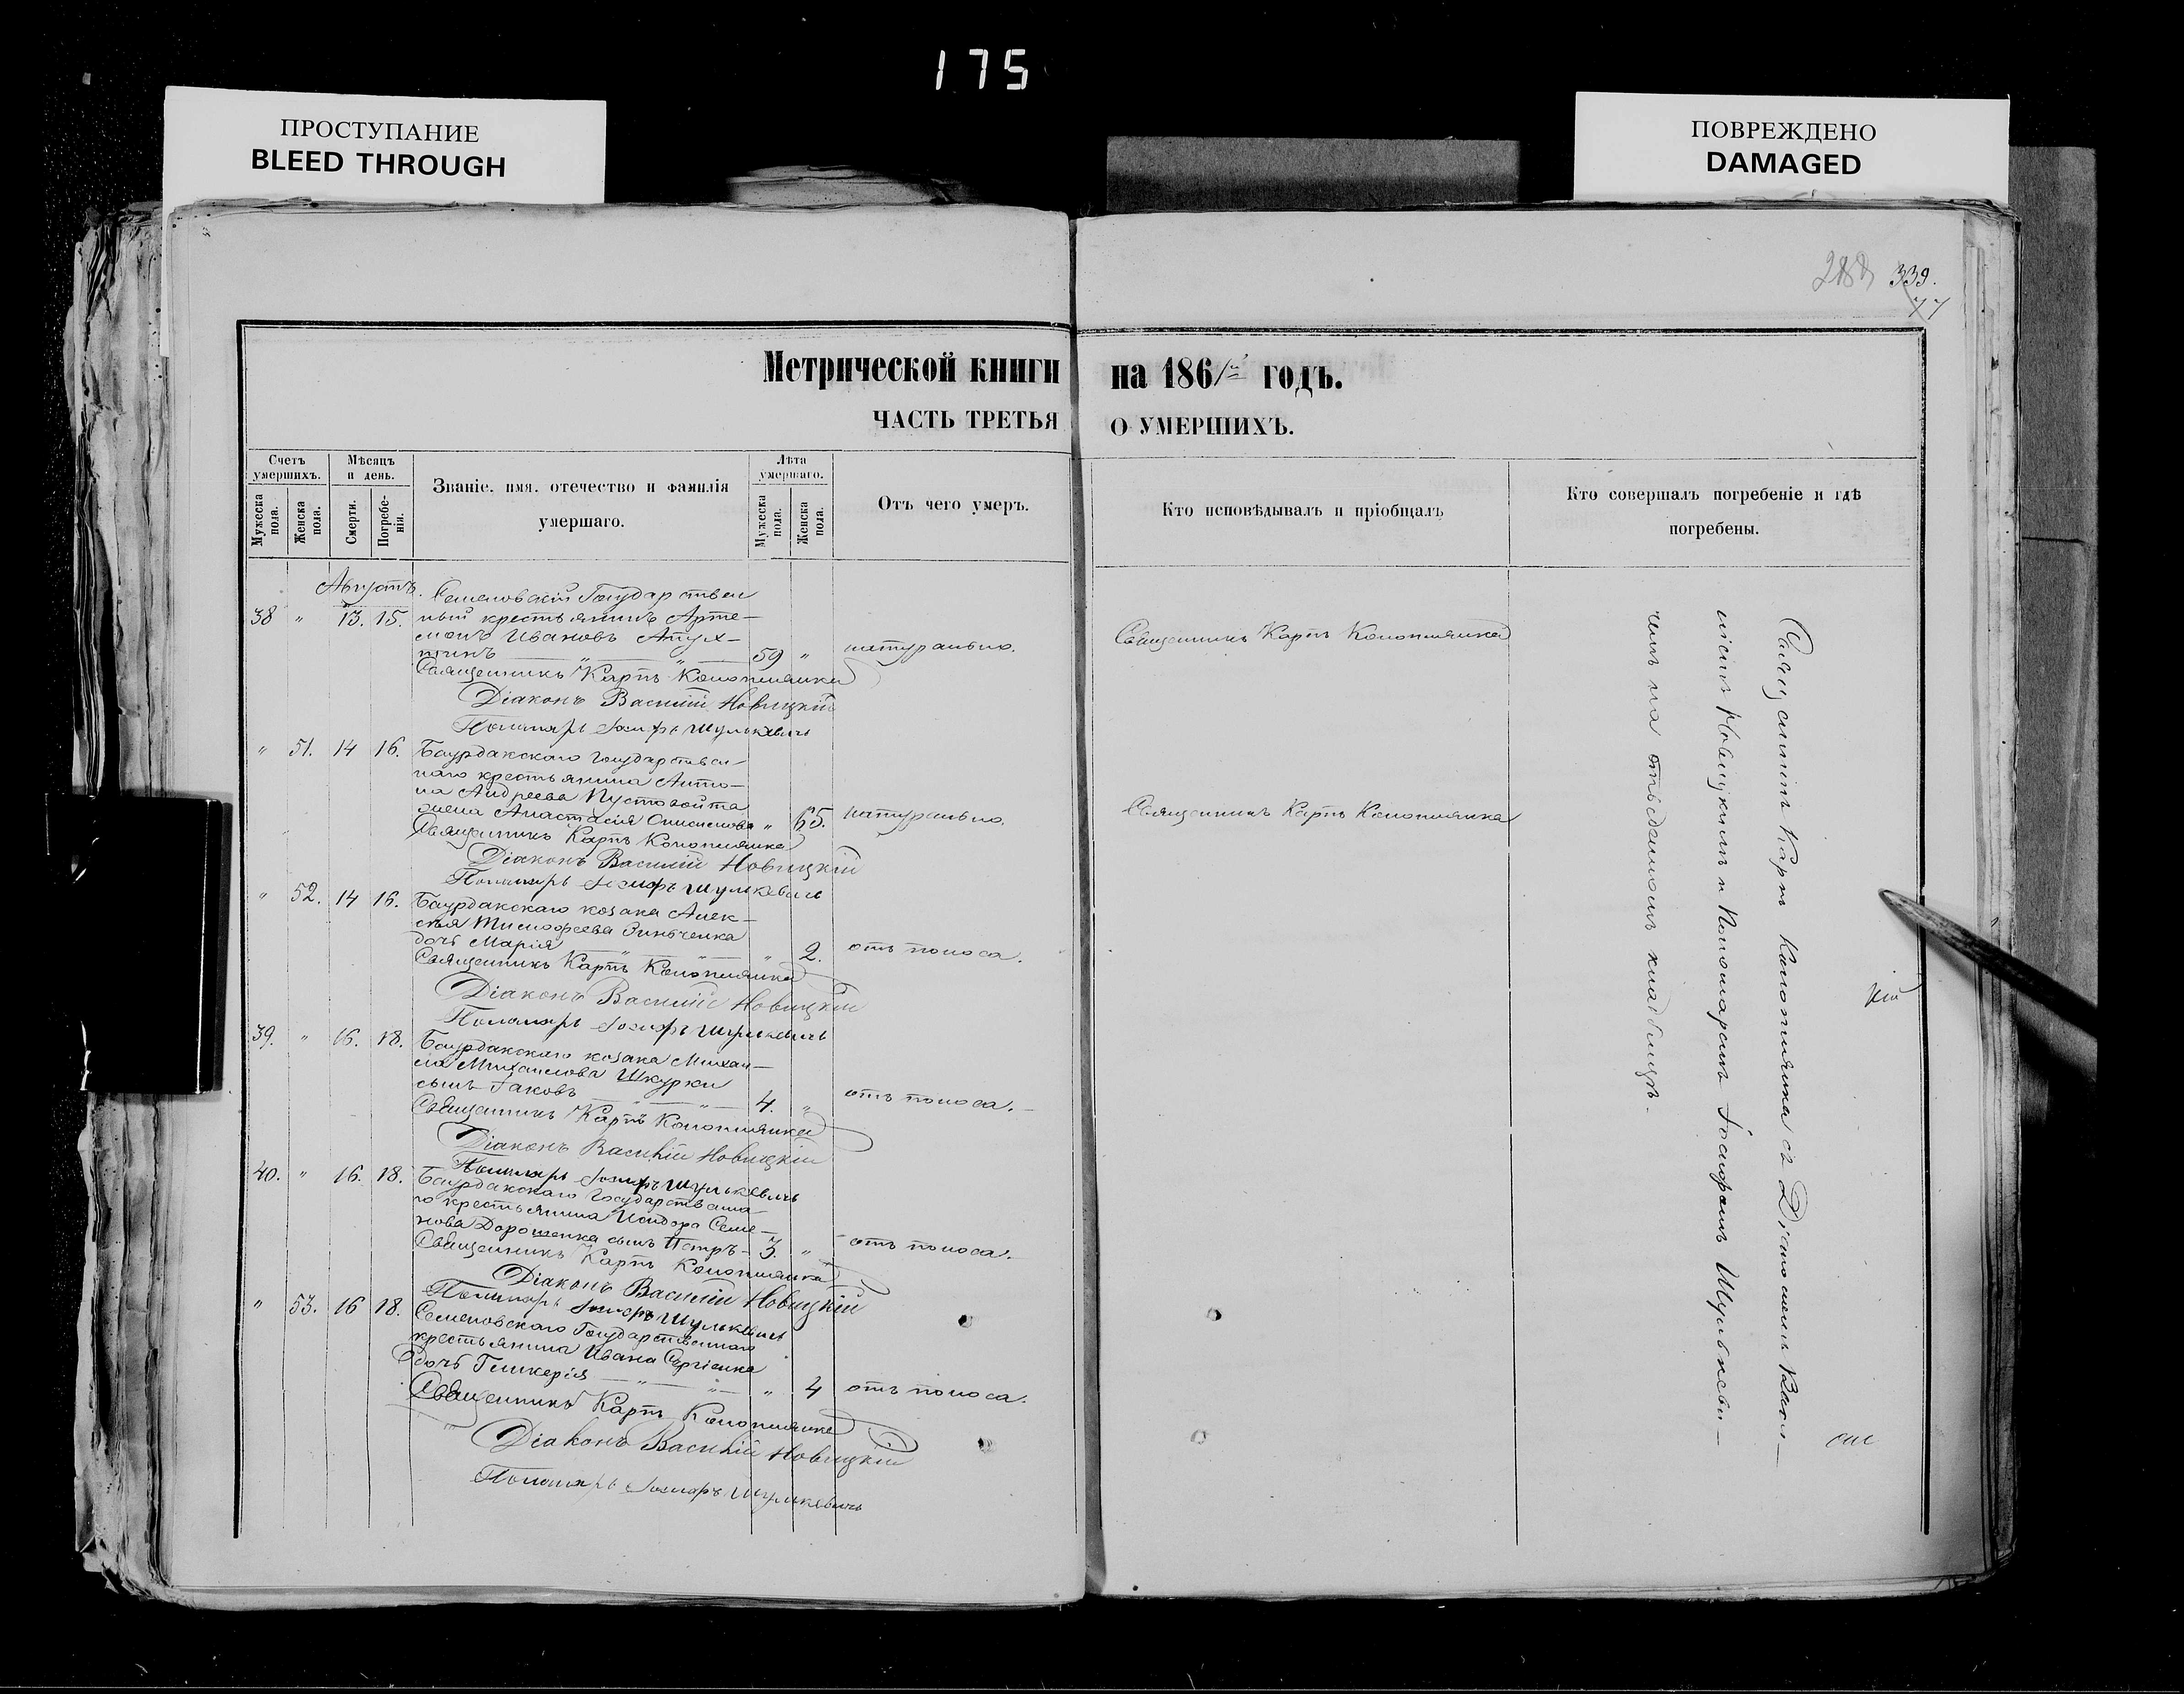 175
ПРОСТУПАНИЕ
BLEED THROUGH
ПОВРЕЖДЕНО
DAMAGED
339.
77
Метрической книги на 1861й годъ.
ЧАСТЬ ТРЕТЬЯ О УМЕРШИХЪ.
Счетъ умершихъ.
Мужеска пола.
Женска пола.
Мѣсяцъ и день.
Смерти.
Погребенія.
Званіе, имя, отечество и фамилія
умершаго.
Лѣта умершаго.
Мужеска пола.
Женска пола.
Отъ чего умеръ.
Кто исповѣдывалъ и пріобщалъ
Кто совершалъ погребеніе и гдѣ
погребены.
Августъ.
Семеновскій Государствен
38 " 13. 15. ный крестьянинъ Арте-
монъ Ивановъ Апух-
тинъ " " 59 " натурально. Священникъ Карпъ Коноплянка
Священникъ Карпъ Коноплянка
Діаконъ Василій Новицкій
Пономарь Іосифъ Шулькевичъ
" 51. 14 16. Баурдакскаго государствен-
наго крестьянина Анто-
на Андреева Пустовойта
жена Анастасія Онисимова " 65. натурально. Священникъ Карпъ Коноплянка
Священникъ Карпъ Коноплянка
Діаконъ Василій Новицкій
Пономарь Іосифъ Шулькевичъ
" 52. 14 16. Баурдакскаго козака Алек-
сѣя Тимофеева Зинченка
дочь Марія " " " 2. отъ поноса.
Священникъ Карпъ Коноплянка
Діаконъ Василій Новицкій
Пономарь Іосифъ Шулькевичъ
39. " 16. 18. Баурдакскаго козака Михаи-
ла Михайлова Шкурки
сынъ Іаковъ " " 4. " отъ поноса.
Священникъ Карпъ Коноплянка
Діаконъ Василій Новицкій
Пономарь Іосифъ Шулькевичъ
40. " 16. 18. Баурдакскаго Государственна
го крестьянина Исидора Семе-
нова Дорошенка сынъ Петръ - 3. " отъ поноса.
Священникъ Карпъ Коноплянка
Діаконъ Василій Новицкій
Пономарь Іосифъ Шулькевичъ
" 53. 16 18. Семеновскаго Государственнаго
крестьянина Ивана Сергіенка
дочь Гликерія " " " 4 отъ поноса.
Священникъ Карпъ Коноплянка
Діаконъ Василій Новицкій
Пономарь Іосифъ Шулькевичъ
Священникъ Карпъ Коноплянка съ Діакономъ Васи-
ліемъ Новицкимъ и Пономаремъ Іосифомъ Шулькеви-
чемъ на отведенномъ кладбищѣ.